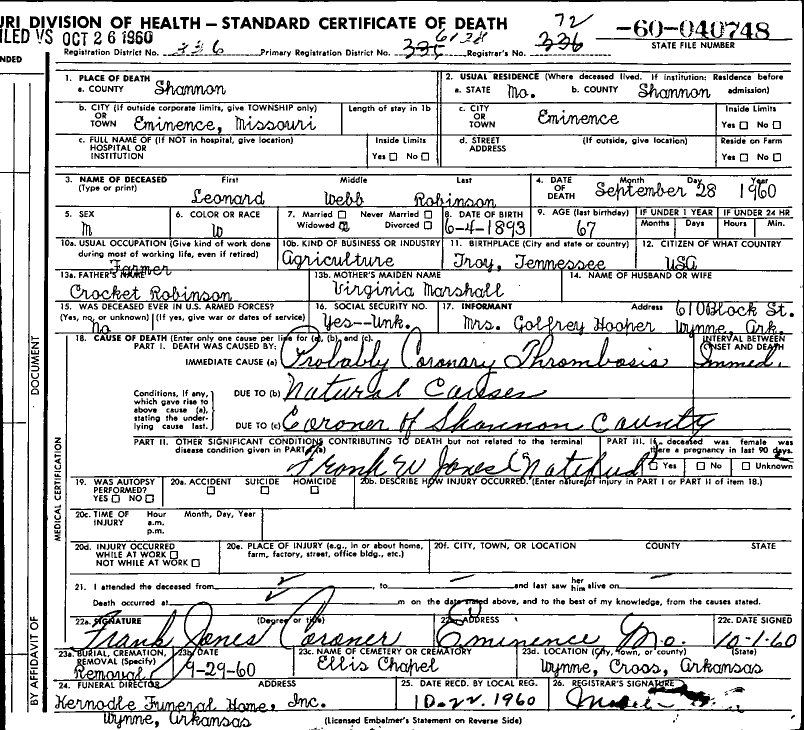 URI DIVISION OF HEALTH — STANDARD CERTIFICATE OF DEATH 72 —60-040748
ILED VS OCT 26 1960 6138 STATE FILE NUMBER
Registration District No. 336 Primary Registration District No. 335 Registrar's No. 336
NDED
1. PLACE OF DEATH
a. COUNTY Shannon
2. USUAL RESIDENCE (Where deceased lived. If institution: Residence before admission)
a. STATE Mo. b. COUNTY Shannon
b. CITY (If outside corporate limits, give TOWNSHIP only) OR TOWN Eminence, Missouri
Length of stay in 1b
c. CITY OR TOWN Eminence
Inside Limits Yes No
c. FULL NAME OF (If NOT in hospital, give location) HOSPITAL OR INSTITUTION
Inside Limits Yes No
d. STREET ADDRESS (If outside, give location)
Reside on Farm Yes No
3. NAME OF DECEASED (Type or print) First Middle Last
Leonard Webb Robinson
4. DATE OF DEATH Month Day Year
September 28 1960
5. SEX M
6. COLOR OR RACE W
7. Married Never Married Widowed Divorced
8. DATE OF BIRTH 6-4-1893
9. AGE (last birthday) 67
IF UNDER 1 YEAR Months Days
IF UNDER 24 HR Hours Min.
10a. USUAL OCCUPATION (Give kind of work done during most of working life, even if retired) Farmer
10b. KIND OF BUSINESS OR INDUSTRY Agriculture
11. BIRTHPLACE (City and state or country) Troy, Tennessee
12. CITIZEN OF WHAT COUNTRY USA
13a. FATHER'S NAME Crocket Robinson
13b. MOTHER'S MAIDEN NAME Virginia Marshall
14. NAME OF HUSBAND OR WIFE
15. WAS DECEASED EVER IN U.S. ARMED FORCES? (Yes, no, or unknown) (If yes, give war or dates of service) No
16. SOCIAL SECURITY NO. Yes--Unk.
17. INFORMANT Address
Mrs. Golfrey Hooper 610 Block St. Wynne, Ark.
18. CAUSE OF DEATH (Enter only one cause per line for (a), (b), and (c).
PART I. DEATH WAS CAUSED BY:
INTERVAL BETWEEN ONSET AND DEATH
IMMEDIATE CAUSE (a) Probably Coronary Thrombosis Immed.
Conditions, if any, which gave rise to above cause (a), stating the underlying cause last.
DUE TO (b) Natural Causes
DUE TO (c) Coroner of Shannon County
PART II. OTHER SIGNIFICANT CONDITIONS CONTRIBUTING TO DEATH but not related to the terminal disease condition given in PART I (a)
Frank W Jones
PART III. If deceased was female was there a pregnancy in last 90 days. Yes No Unknown
19. WAS AUTOPSY PERFORMED? YES NO
20a. ACCIDENT SUICIDE HOMICIDE
20b. DESCRIBE HOW INJURY OCCURRED. (Enter nature of injury in PART I or PART II of item 18.)
20c. TIME OF INJURY Hour a.m. p.m. Month, Day, Year
20d. INJURY OCCURRED WHILE AT WORK NOT WHILE AT WORK
20e. PLACE OF INJURY (e.g., in or about home, farm, factory, street, office bldg., etc.)
20f. CITY, TOWN, OR LOCATION COUNTY STATE
21. I attended the deceased from to and last saw her him alive on
Death occurred at m on the date stated above, and to the best of my knowledge, from the causes stated.
22a. SIGNATURE (Degree or title) Frank Jones Coroner
22b. ADDRESS Eminence Mo.
22c. DATE SIGNED 10-1-60
23a. BURIAL, CREMATION, REMOVAL (Specify) Removal
23b. DATE 9-29-60
23c. NAME OF CEMETERY OR CREMATORY Ellis Chapel
23d. LOCATION (City, town, or county) (State) Wynne, Cross, Arkansas
24. FUNERAL DIRECTOR ADDRESS
Kernodle Funeral Home, Inc.
Wynne, Arkansas
25. DATE RECD. BY LOCAL REG. 10-22-1960
26. REGISTRAR'S SIGNATURE
(Licensed Embalmer's Statement on Reverse Side)
DOCUMENT
MEDICAL CERTIFICATION
BY AFFIDAVIT OF